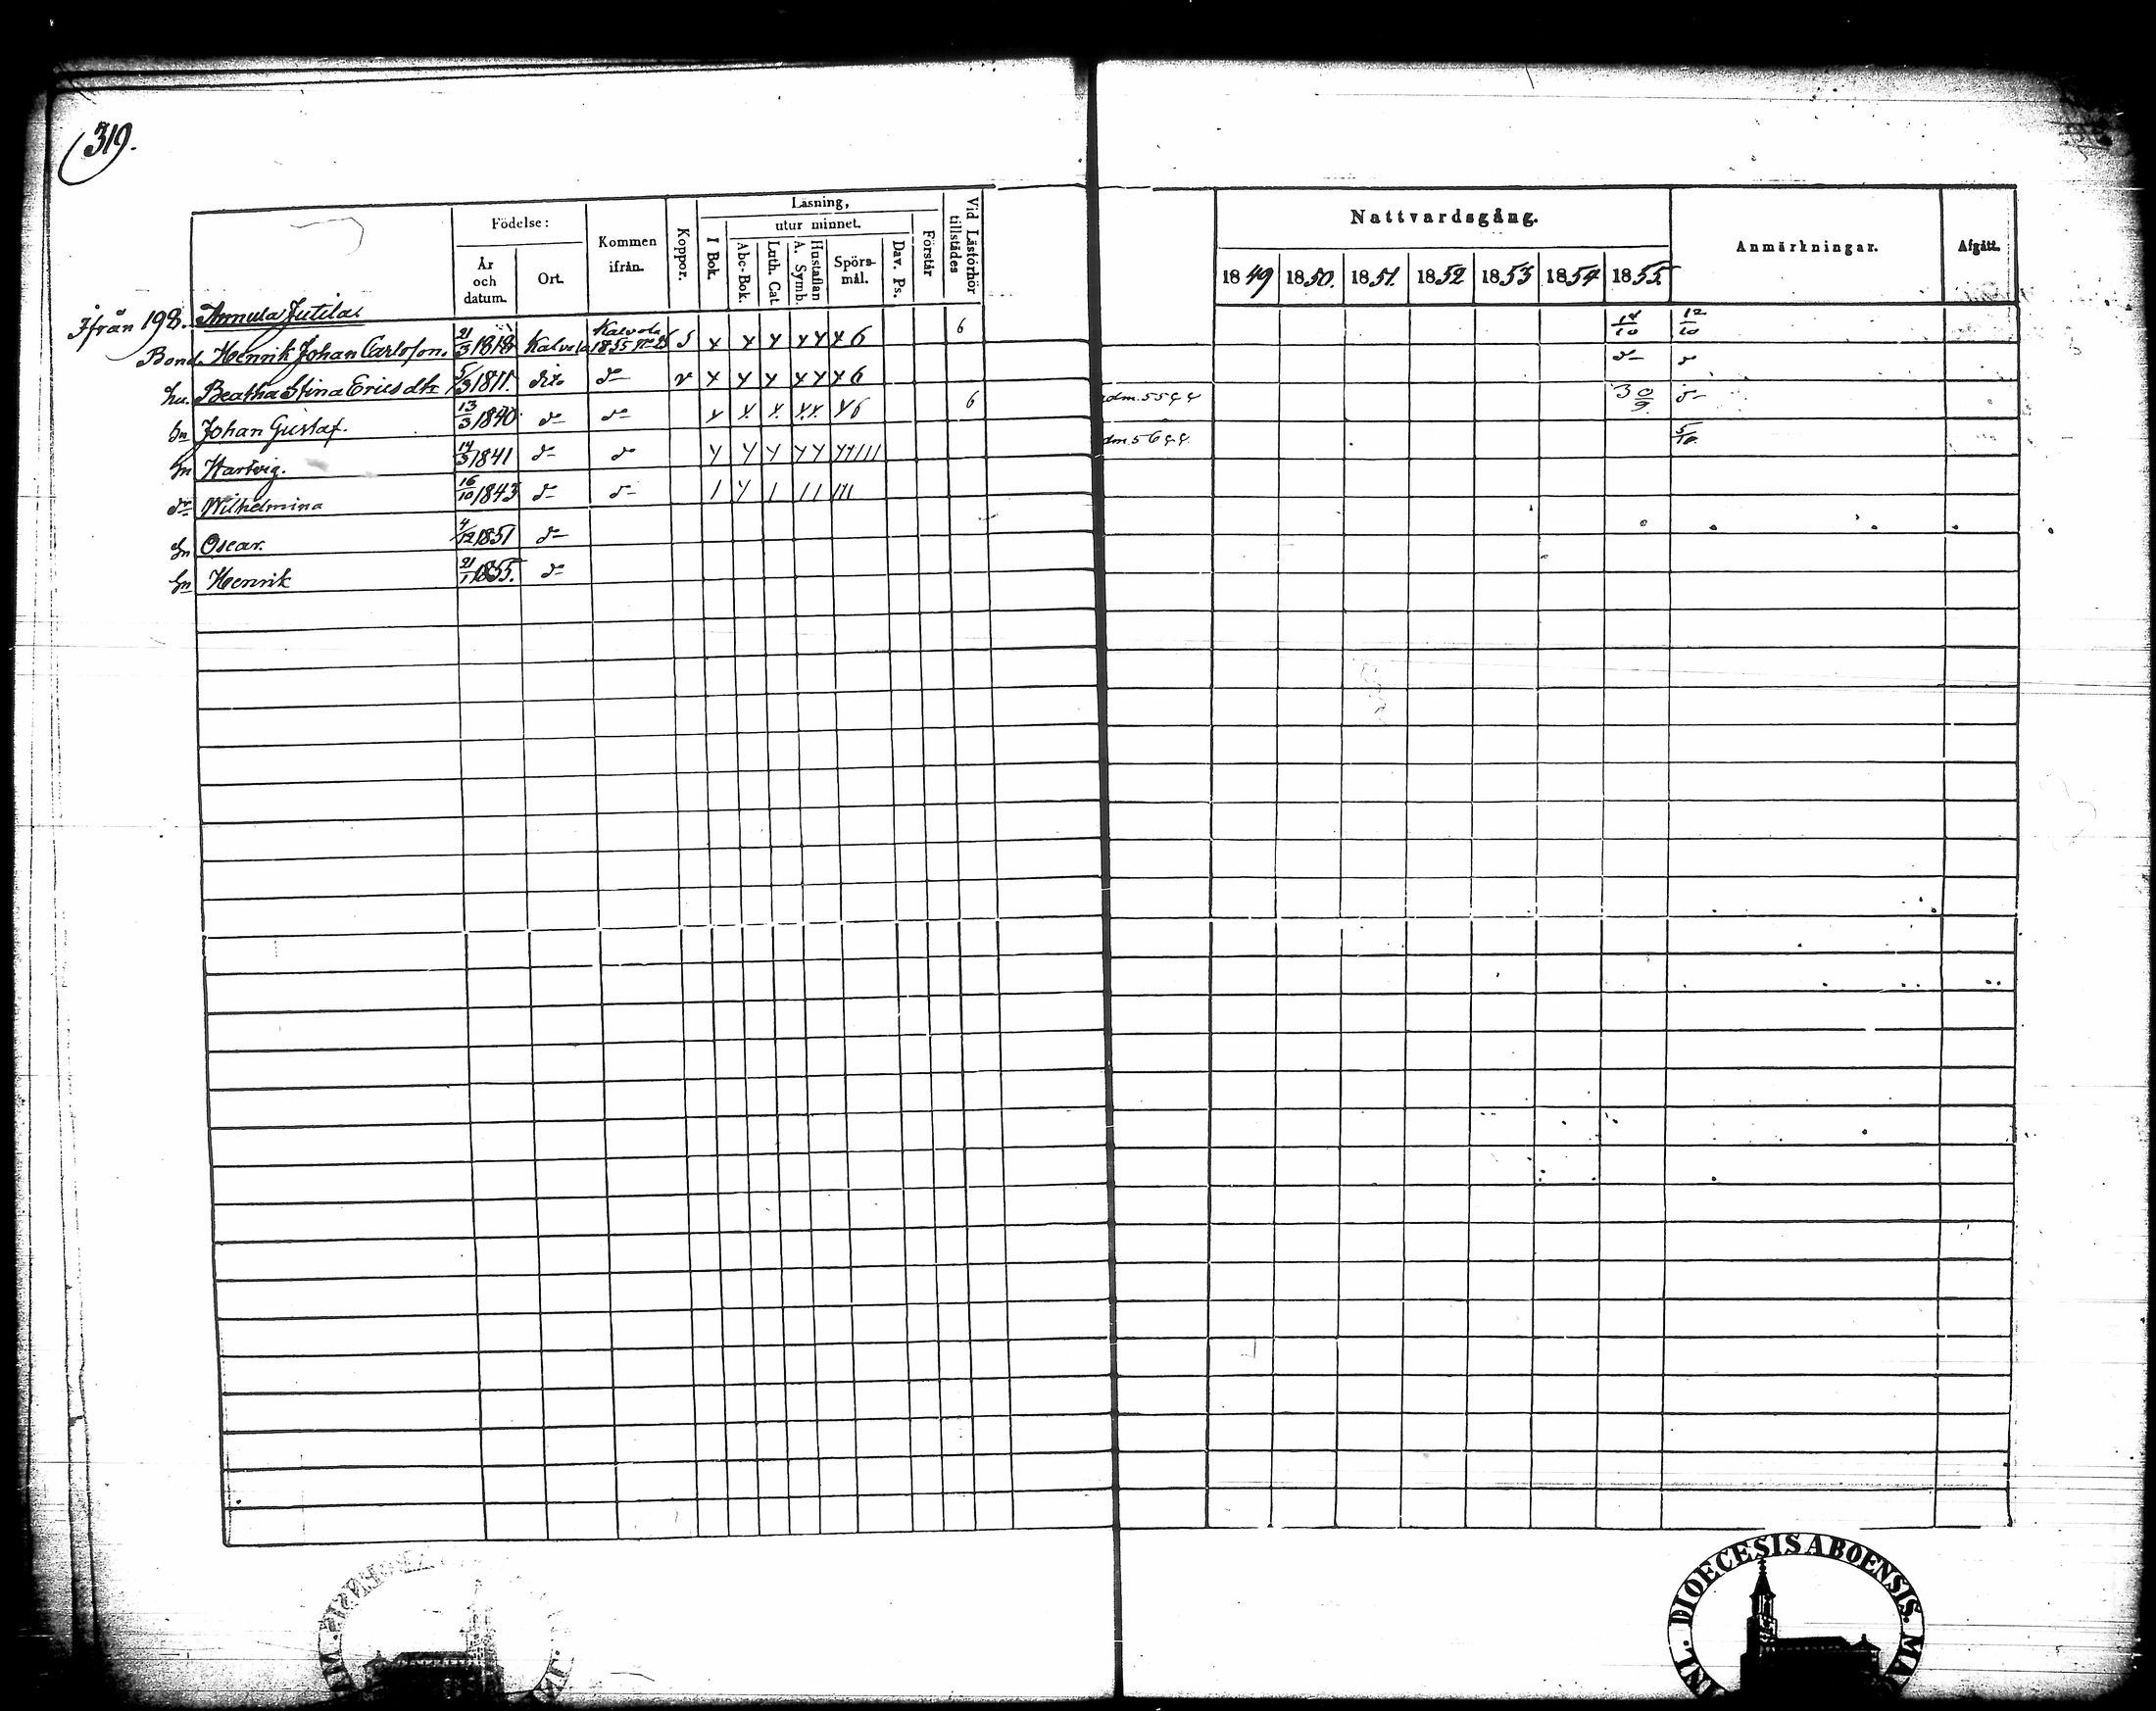 319.
Läsning,
Födelse:
Kommen ifrån.
Koppor.
utur minnet.
Förstår
Vid Läsförhör tillstädes
År och datum.
Ort.
I Bok.
Abc-Bok.
Luth. Cat.
Hustaflan A. Symb.
Spörs-mål.
Dav. Ps.
Nattvardsgång.
Anmärkningar.
Afgått.
1849 1850. 1851. 1852 1853 1854 1855.
Ifrån 198. Annula Jutila
Bond. Henrik Johan Carlsson. 21/3 1818 Kalvola Kalvola 1855 S x x x x x x 6 6 14/10 12/10
hu. Beatha Stina Ericsdtr 5/3 1811. dito do v x x x x x x 6 do do
Sn Johan Gustaf. 13/3 1840 do do x x x x x x 6 6 adm. 55 30/9 do
Sn Hartvig. 14/3 1841 do do adm. 56 5/10
dr Wilhelmina 16/10 1843 do do
Sn Oscar. 4/12 1851 do
Sn Henrik 21/1 1855. do
DIOECESIS ABOENSIS. MA
INL.